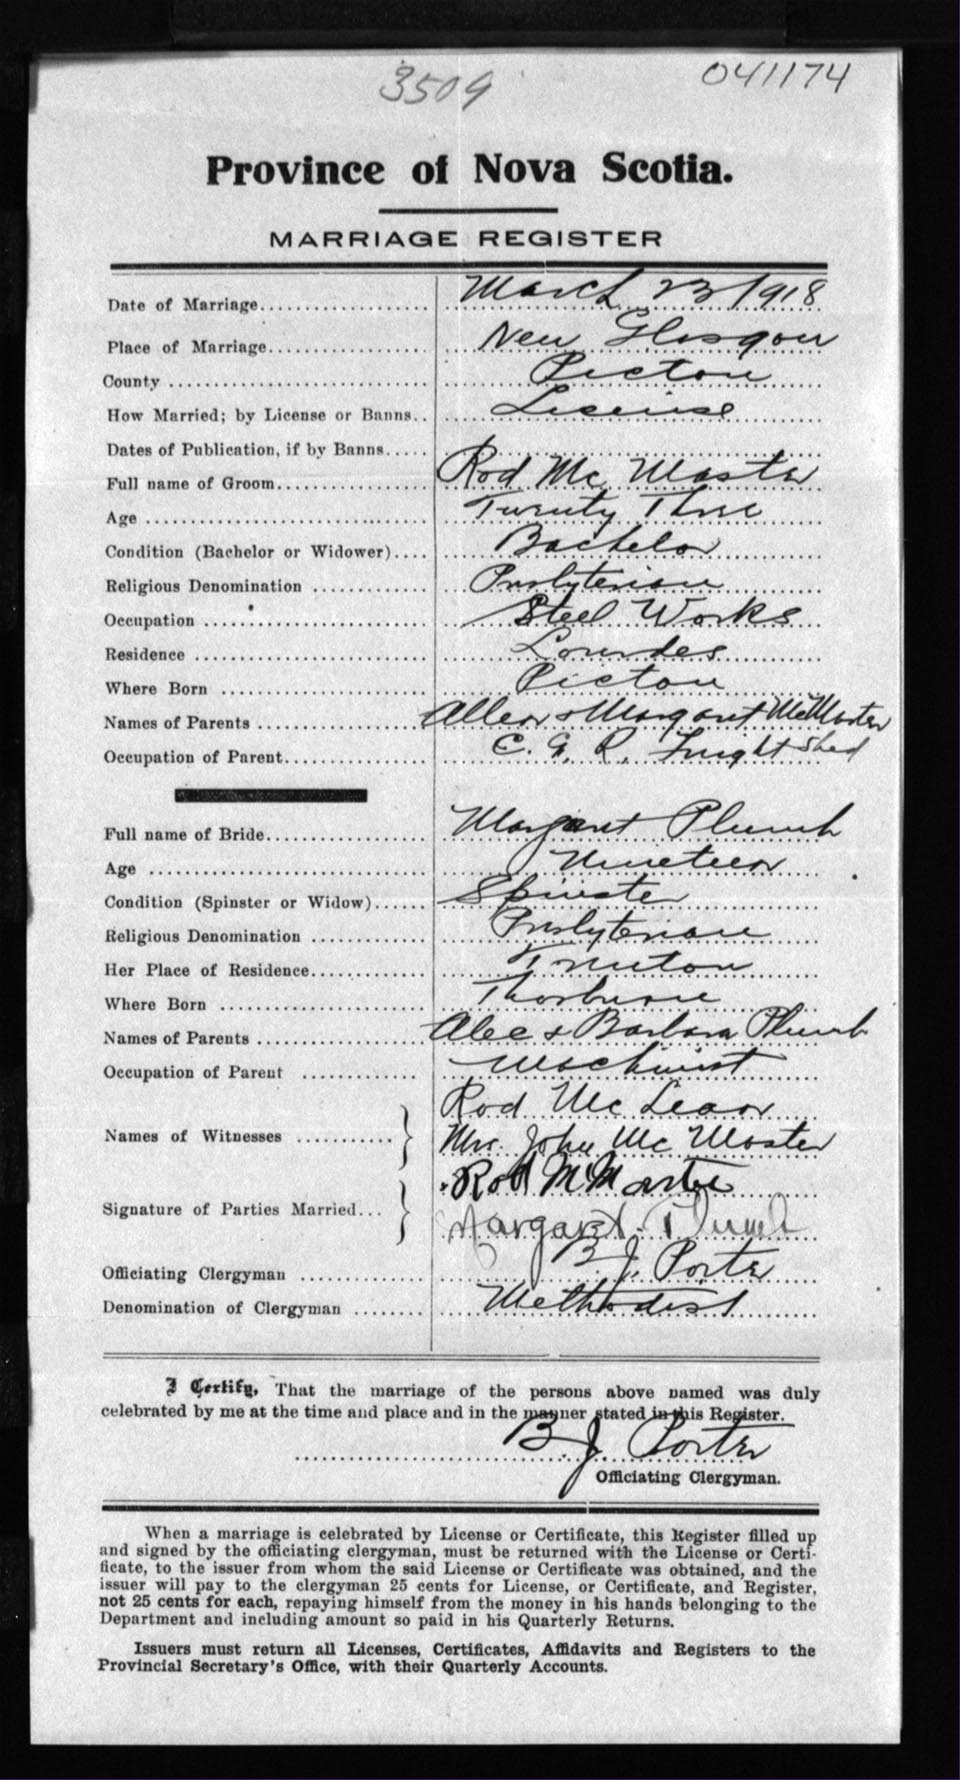 3509
041174
Province of Nova Scotia.
MARRIAGE REGISTER
Date of Marriage................... March 23 1918
Place of Marriage.................. New Glasgow
County ............................ Pictou
How Married; by License or Banns.. License
Dates of Publication, if by Banns.....
Full name of Groom................. Rod McMaster
Age ............................... Twenty Three
Condition (Bachelor or Widower).... Bachelor
Religious Denomination ............ Presbyterian
Occupation ........................ Steel Works
Residence ......................... Lourdes
Where Born ........................ Pictou
Names of Parents .................. Allen & Margaret McMaster
Occupation of Parent............... C. G. R. Freight Shed
Full name of Bride................. Margaret Plumb
Age ............................... Nineteen
Condition (Spinster or Widow)...... Spinster
Religious Denomination ............ Presbyterian
Her Place of Residence............. Trenton
Where Born ........................ Thorburn
Names of Parents .................. Alec & Barbara Plumb
Occupation of Parent .............. Machinist
Rod McLean
Names of Witnesses ........... } Mrs. John McMaster
Rod McMaster
Signature of Parties Married... } Margaret Plumb
Officiating Clergyman ............. B. J. Porter
Denomination of Clergyman ........ Methodist
I Certify, That the marriage of the persons above named was duly
celebrated by me at the time and place and in the manner stated in this Register.
B. J. Porter
Officiating Clergyman.
When a marriage is celebrated by License or Certificate, this Register filled up
and signed by the officiating clergyman, must be returned with the License or Certi-
ficate, to the issuer from whom the said License or Certificate was obtained, and the
issuer will pay to the clergyman 25 cents for License, or Certificate, and Register,
not 25 cents for each, repaying himself from the money in his hands belonging to the
Department and including amount so paid in his Quarterly Returns.
Issuers must return all Licenses, Certificates, Affidavits and Registers to the
Provincial Secretary's Office, with their Quarterly Accounts.